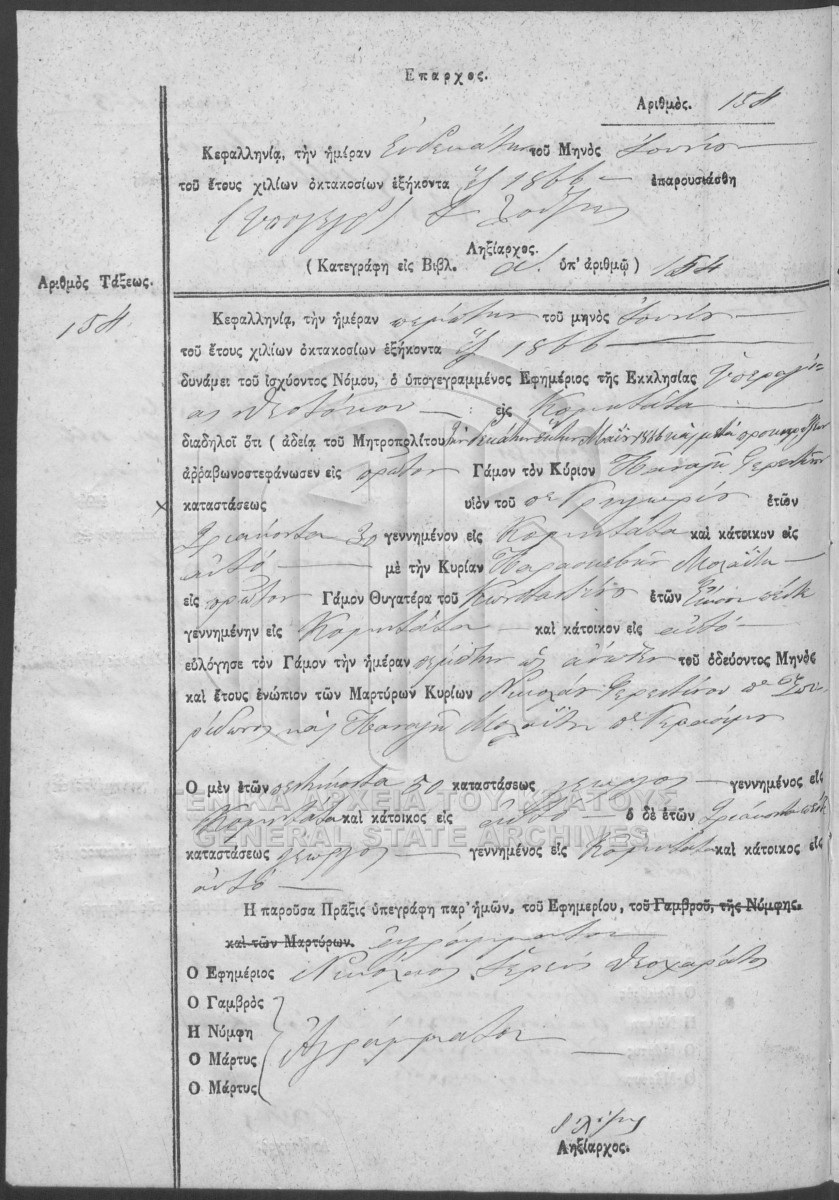 Επαρχος.
Αριθμὸς. 154
Κεφαλληνίᾳ, τὴν ἡμέραν Ενδεκάτην τοῦ Μηνὸς Ιουνίου
τοῦ ἔτους χιλίων ὀκτακοσίων ἑξήκοντα ἓξ 1866 ἐπαρουσιάσθη
Ληξίαρχος.
( Κατεγράφη εἰς Βιβλ. α. ὑπ' ἀριθμῷ ) 154
Αριθμὸς Τάξεως.
154
Κεφαλληνίᾳ, τὴν ἡμέραν πέμπτην τοῦ μηνὸς Ιουνίου
τοῦ ἔτους χιλίων ὀκτακοσίων ἑξήκοντα ἓξ 1866
δυνάμει τοῦ ἰσχύοντος Νόμου, ὁ ὑπογεγραμμένος Εφημέριος τῆς Εκκλησίας Υπεραγί
ας Θεοτόκου εἰς Κομητάτα
διαδηλοῖ ὅτι ( ἀδείᾳ τοῦ Μητροπολίτου Μαΐου 1866
ἀῤῥαβωνοστεφάνωσεν εἰς πρῶτον Γάμον τὸν Κύριον Παναγῆ Φερεντῖνον
καταστάσεως υἱὸν τοῦ ποτὲ Γρηγορίου ἐτῶν
Τριάκοντα 30 γεννημένον εἰς Κομητάτα καὶ κάτοικον εἰς
αὐτό μὲ τὴν Κυρίαν Παρασκευὴν
εἰς πρῶτον Γάμον Θυγατέρα τοῦ Κωνσταντίνου ἐτῶν Είκοσι πέντε
γεννημένην εἰς Κομητάτα καὶ κάτοικον εἰς αὐτό
εὐλόγησε τὸν Γάμον τὴν ἡμέραν πέμπτην ὡς ἄνωθεν τοῦ ὁδεύοντος Μηνὸς
καὶ ἔτους ἐνώπιον τῶν Μαρτύρων Κυρίων Νικολάου Φερεντίνου ποτὲ Σπυ
ρίδωνος καὶ Παναγῆ ποτὲ Γερασίμου
Ο μὲν ἐτῶν πεντήκοντα 50 καταστάσεως γεωργὸς γεννημένος εἰς
Κομητάτα καὶ κάτοικος εἰς αὐτό ὁ δὲ ἐτῶν Τριάκοντα πέντε
καταστάσεως γεωργος γεννημένος εἰς Κομητάτα καὶ κάτοικος εἰς
αὐτό
Η παροῦσα Πρᾶξις ὑπεγράφη παρ' ἡμῶν, τοῦ Εφημερίου, τοῦ Γαμβροῦ, τῆς Νύμφης.
καὶ τῶν Μαρτύρων. ἀγραμμάτων
Ο Εφημέριος Νικόλαος Ἱερεὺς Θεοχαράτος
Ο Γαμβρὸς
Η Νύμφη
Ο Μάρτυς Ἀγράμματοι
Ο Μάρτυς
Ληξίαρχος.
ΓΕΝΙΚΑ ΑΡΧΕΙΑ ΤΟΥ ΚΡΑΤΟΥΣ
GENERAL STATE ARCHIVES